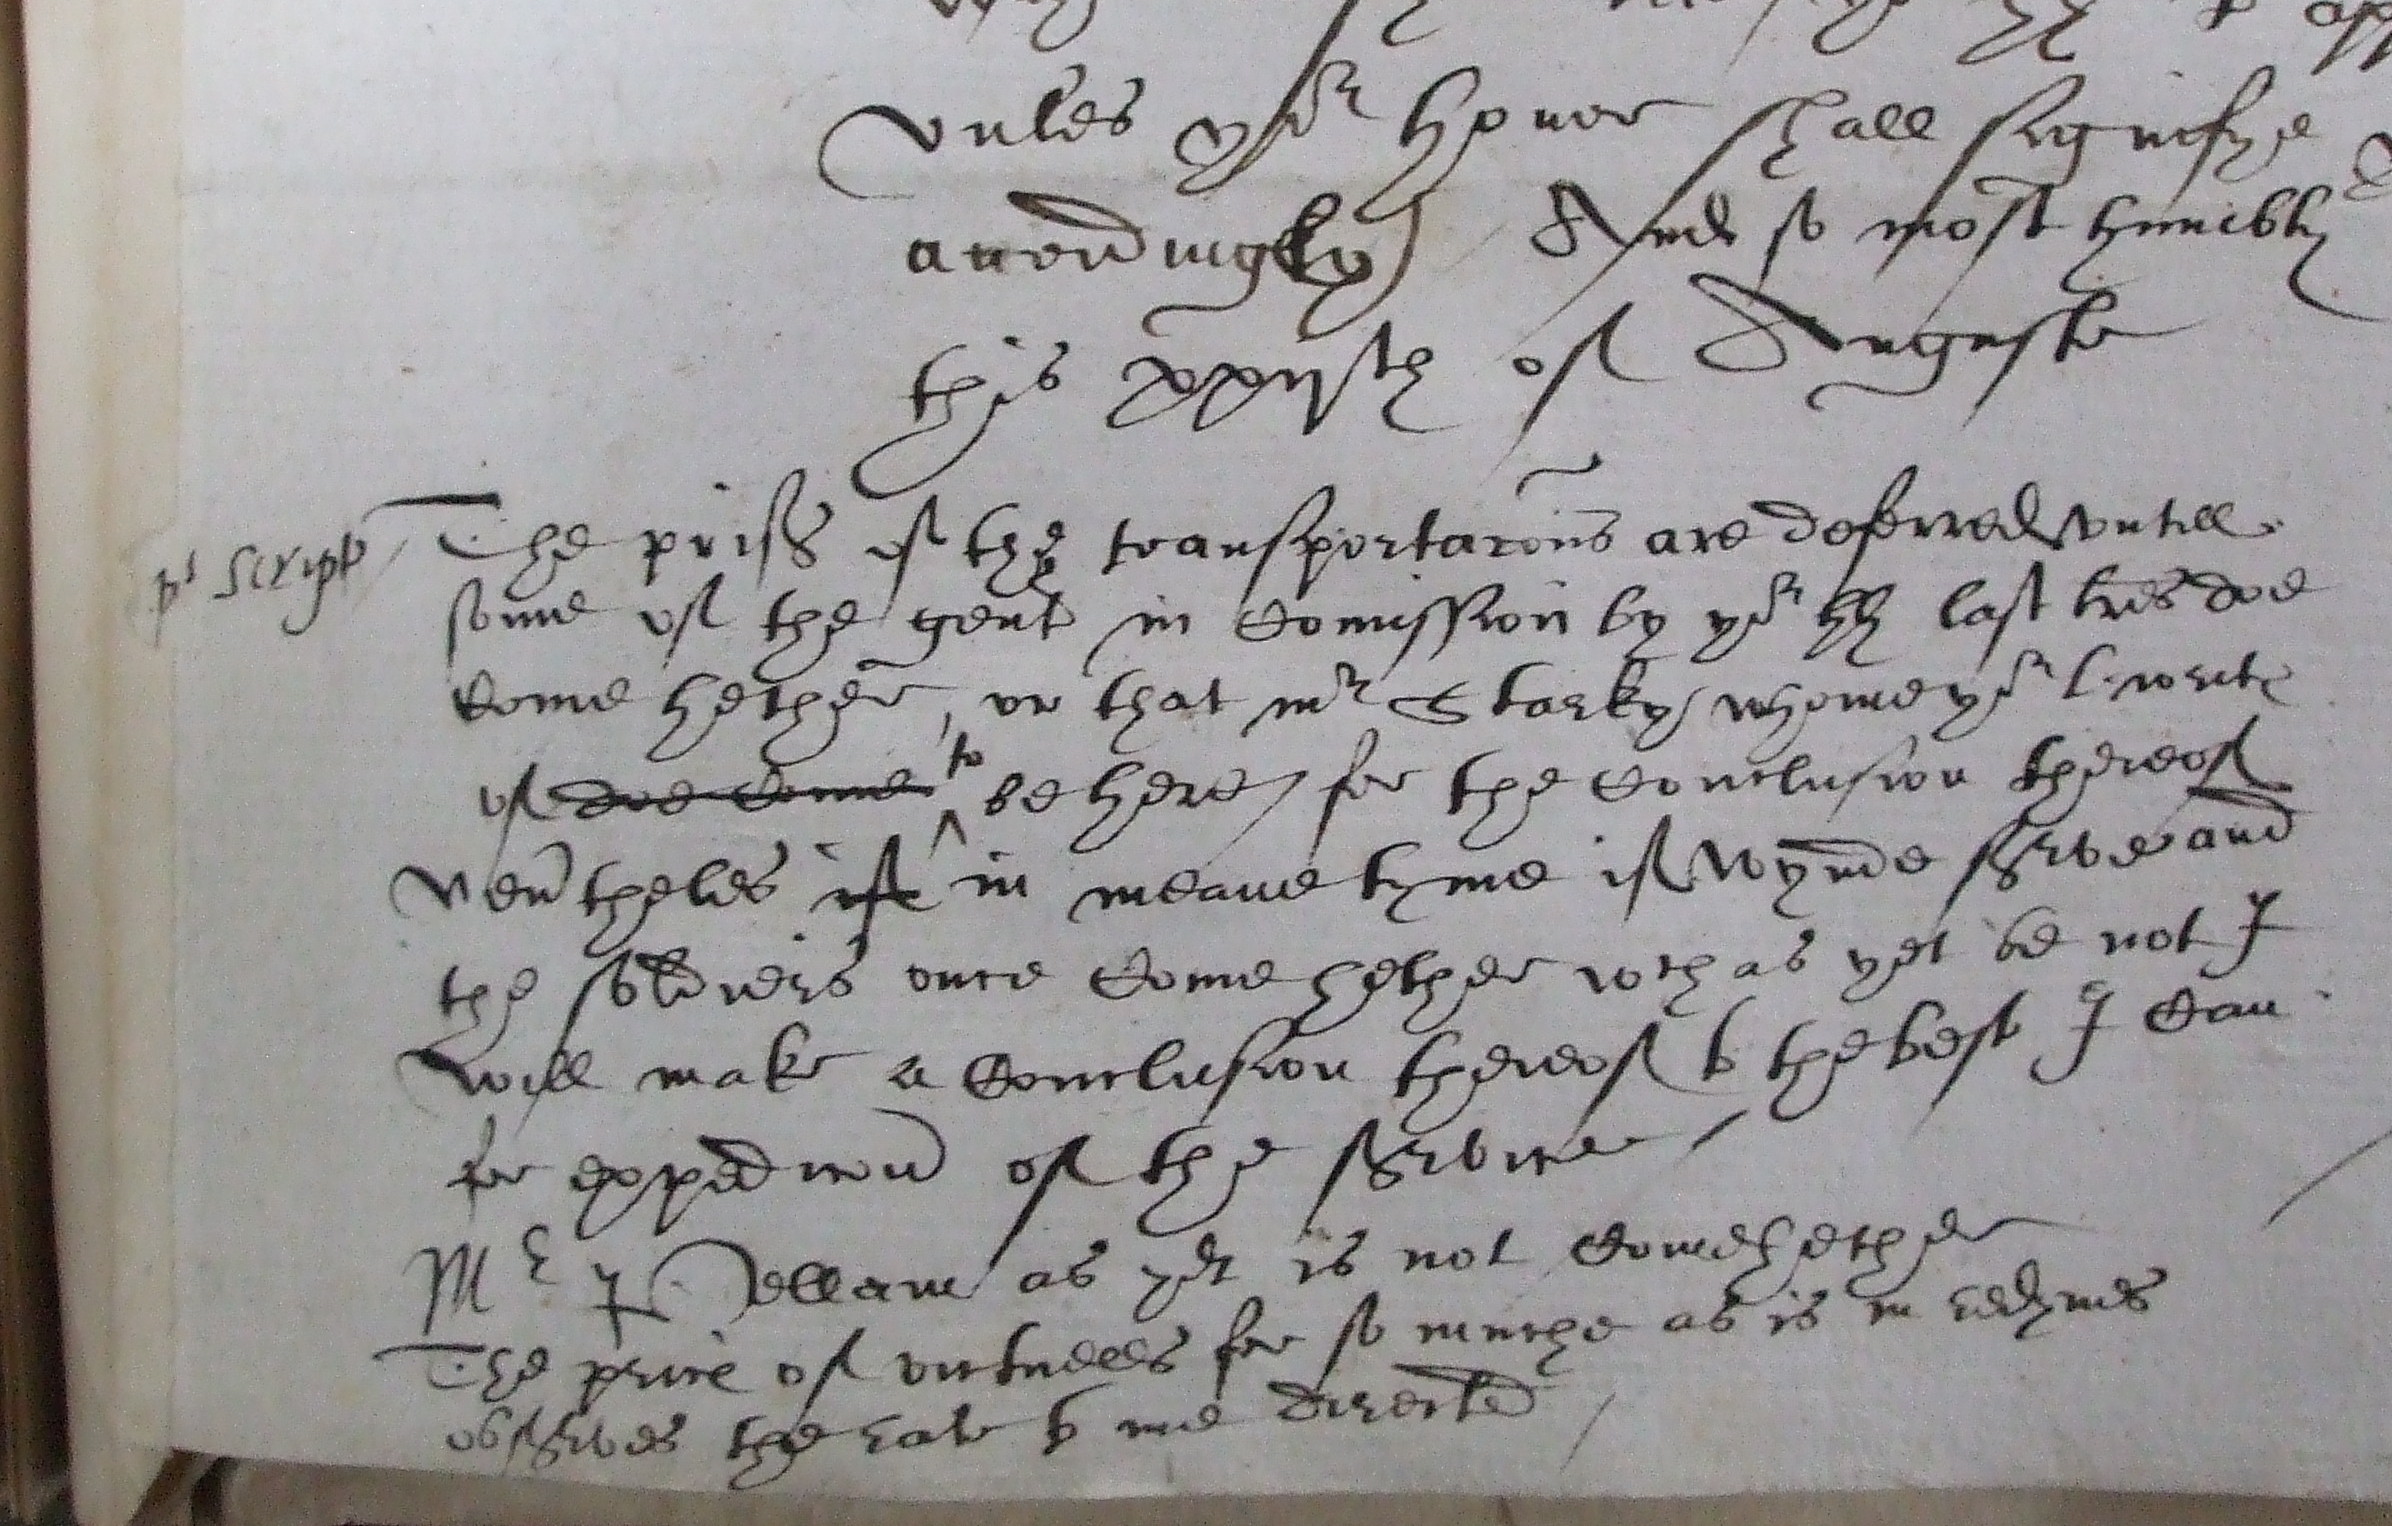 vnles yor honor shall signifye
accordingly And so most humbly
this xxvjth of Auguste
pt script The prises of the transportacons are deferred vntill
some of the gent in Comission by yor hh last lres doe
Come hether, or that mr Starky whome yor l. write
of doe Come to be here for the Conclusion thereof
neutheles if in meane tyme if wynde serve and
the soldiers once Come hether wch as yet be not I
will make a Conclusion thereof to the best I Can
for expedicon of the service
Mr as yet is not Come hether
The price of victuells for so muche as is in redynes
observes the rate to me directed